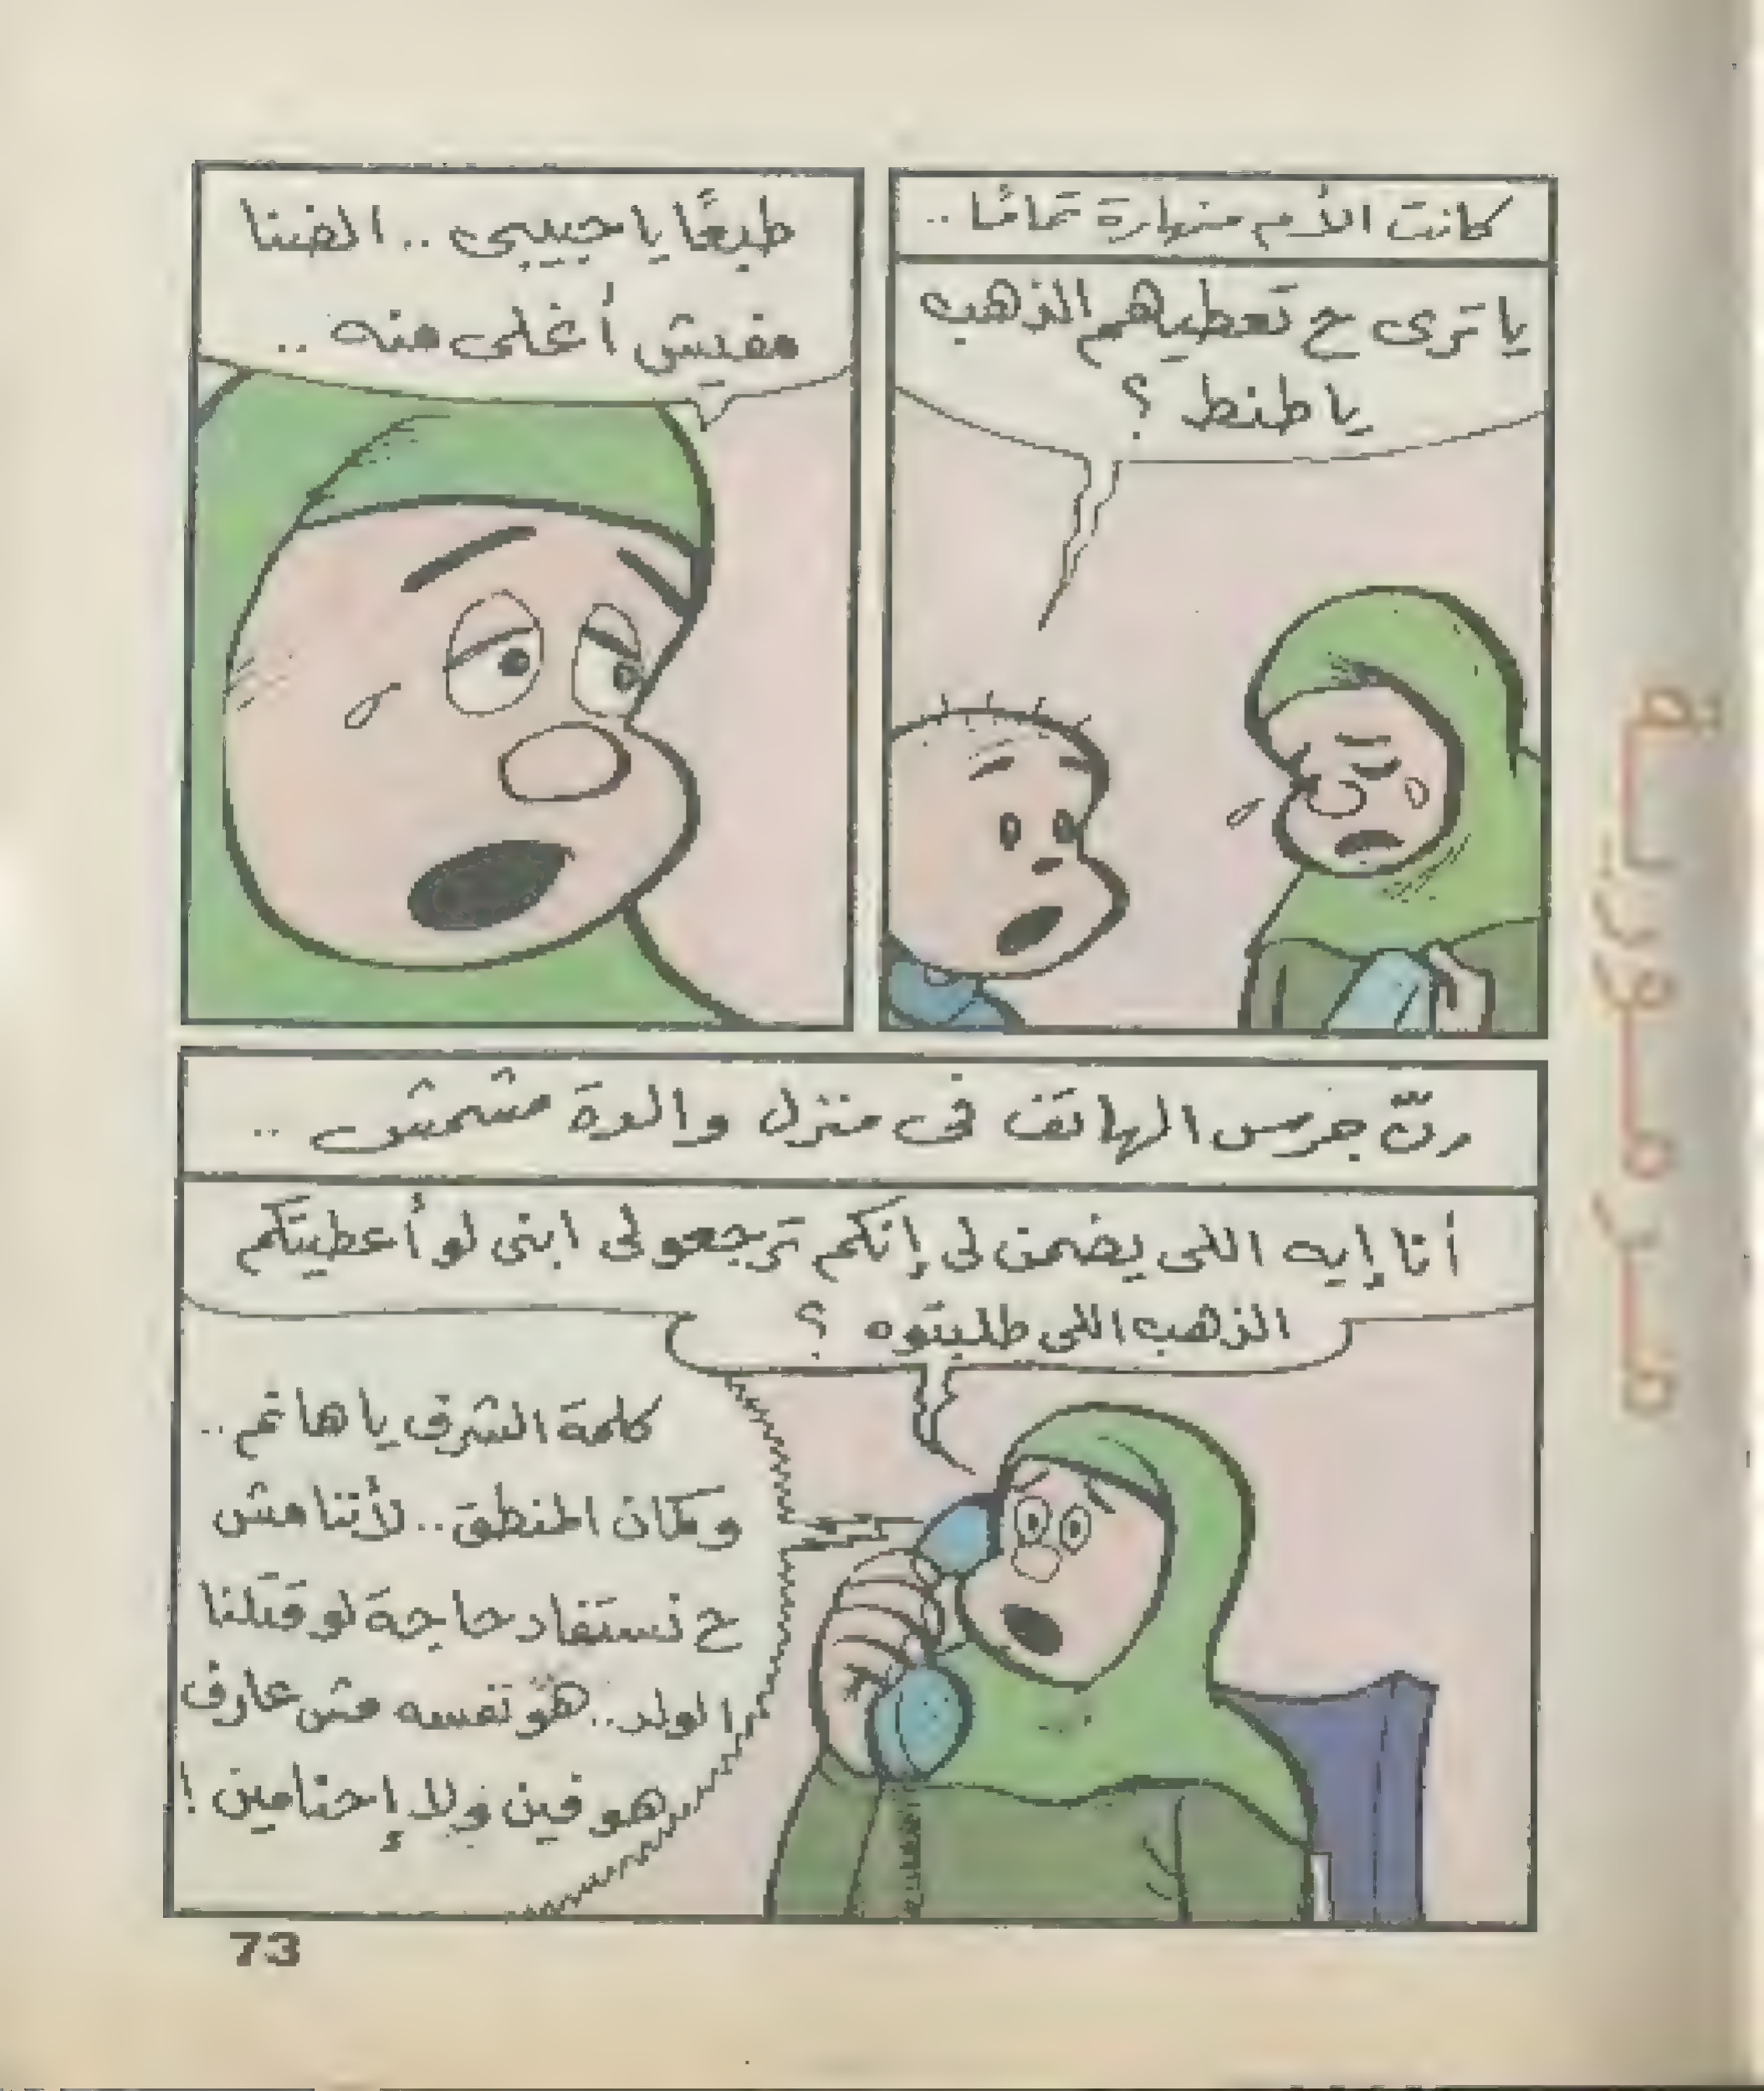 كانت الأم منهارة تمامًا ..
يا ترى ح تعطيهم الذهب
يا طنط ؟
طبعًا يا حبيبى .. الضنا
مفيش أغلى منه ..
رنّ جرس الهاتف فى منزل والدة مشمش ..
أنا إيه اللى يضمن لى إنكم ترجعولى ابنى لو أعطيتكم
الذهب اللى طلبتوه ؟
كلمة الشرف يا هانم ..
وكمان المنطق .. لأننا مش
ح نستفاد حاجة لو قتلنا
الولد .. هوّ نفسه مش عارف
هو فين ولا إحنا مين !
73